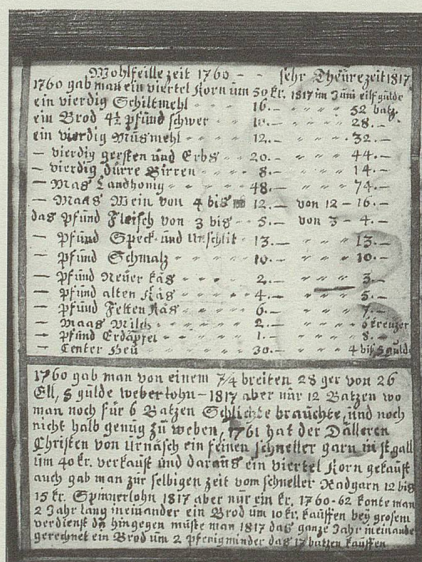 Wohlfeille zeit 1760 - - sehr Theure zeit 1817
1760 gab man ein viertel Korn um 59 kr. 1817 im Juni eilf gulde
ein vierdig Schiltmehl 16.– " " " 52 batz.
ein Brod 4½ pfund schwer 10.– " " " 28.–
ein vierdig Müsmehl 12.– " " " 32.–
– vierdig gersten und Erbs 20.– " " " 44.–
– vierdig dürre Birren 8.– " " " 14.–
– Mas Landhonig 48.– " " " 74.–
– Maas Wein von 4 bis 12.– von 12 – 16.–
das Pfund Fleisch von 3 bis 5.– von 3 – 4.–
– Pfund Speck und Unschlit 13.– " " " 13.–
– Pfund Schmalz 10.– " " " 10.–
– Pfund Neüer käs 2.– " " " 3.
– Pfund alten Käs 4.– " " " 5.–
– Pfund Fetten Käs 6.– " " " 7.–
– Maas Milch 2.– " " " 6 kreuzer
– Pfund Erdäpfel 1.– " " " 8.–
– Center Heu 30.– " " " 4 bis 5 guld
1760 gab man von einem 7/4 breiten 28 ger von 26
Ell, 5 gulde weberlohn – 1817 aber nur 12 Batzen wo
man noch für 6 Batzen Schlichte brauchte, und noch
nicht halb genug zu weben, 1761 hat der Dälleren
Christen von Urnäsch ein feinen schneller garn in st gall
um 40 kr. verkauft und daraus ein viertel Korn gekauft
auch gab man zur selbigen zeit vom schneller Radgarn 12 bis
15 kr. Spinnerlohn 1817 aber nur ein kr. 1760-62 konte man
2 Jahr lang ineinander ein Brod um 10 kr. kauffen bey grosem
verdienst da hingegen muste man 1817 das ganze Jahr ineinander
gerechnet ein Brod um 2 pfenig minder das 17 batzen kauffen